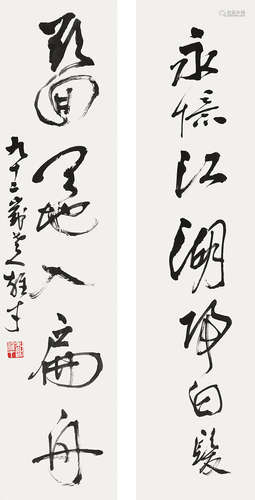 永憶江湖歸白髮
欲回天地入扁舟
九十三歲黃雄才